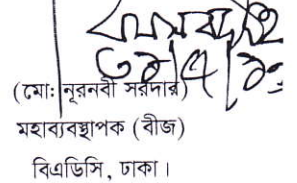 (মো: নূরনবী সরদার)
মহাব্যবস্থাপক (বীজ)
বিএডিসি, ঢাকা।